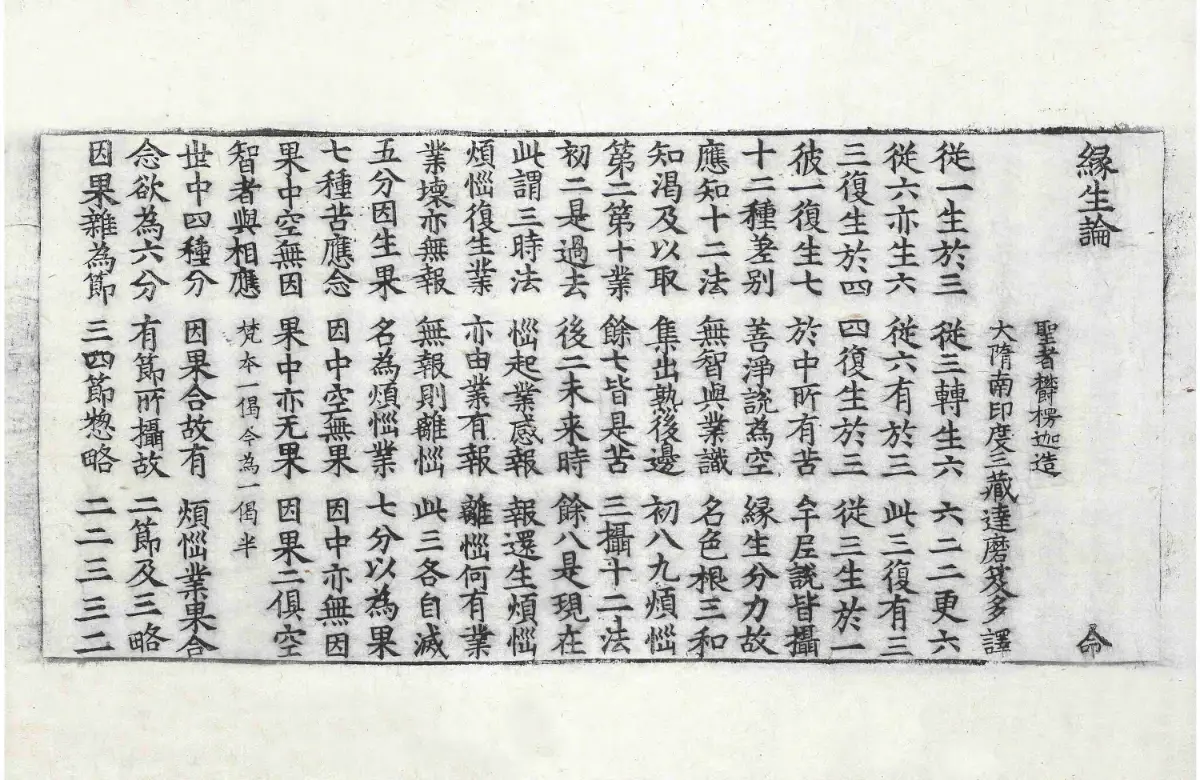 縁生論 命
聖者欝楞迦造
大隋南印度三藏達磨芨多譯
從一生於三 從三轉生六 六二二更六
從六亦生六 從六有於三 此三復有三
三復生於四 四復生於三 從三生於一
彼一復生七 於中所有苦 牟尼說皆攝
十二種差别 善淨說為空 縁生分力故
應知十二法 無智與業識 名色根三和
知渴及以取 集出熟後邊 初八九煩惱
第二第十業 餘七皆是苦 三攝十二法
初二是過去 後二未来時 餘八是現在
此謂三時法 惱起業感報 報還生煩惱
煩惱復生業 亦由業有報 離惱何有業
業壞亦無報 無報則離惱 此三各自滅
五分因生果 名為煩惱業 七分以為果
七種苦應念 因中空無果 因中亦無因
果中空無因 果中亦无果 因果二俱空
智者與相應 梵本一偈今為一偈半
世中四種分 因果合故有 煩惱業果合
念欲為六分 有節所攝故 二節及三略
因果雜為節 三四節惣略 二二三三二